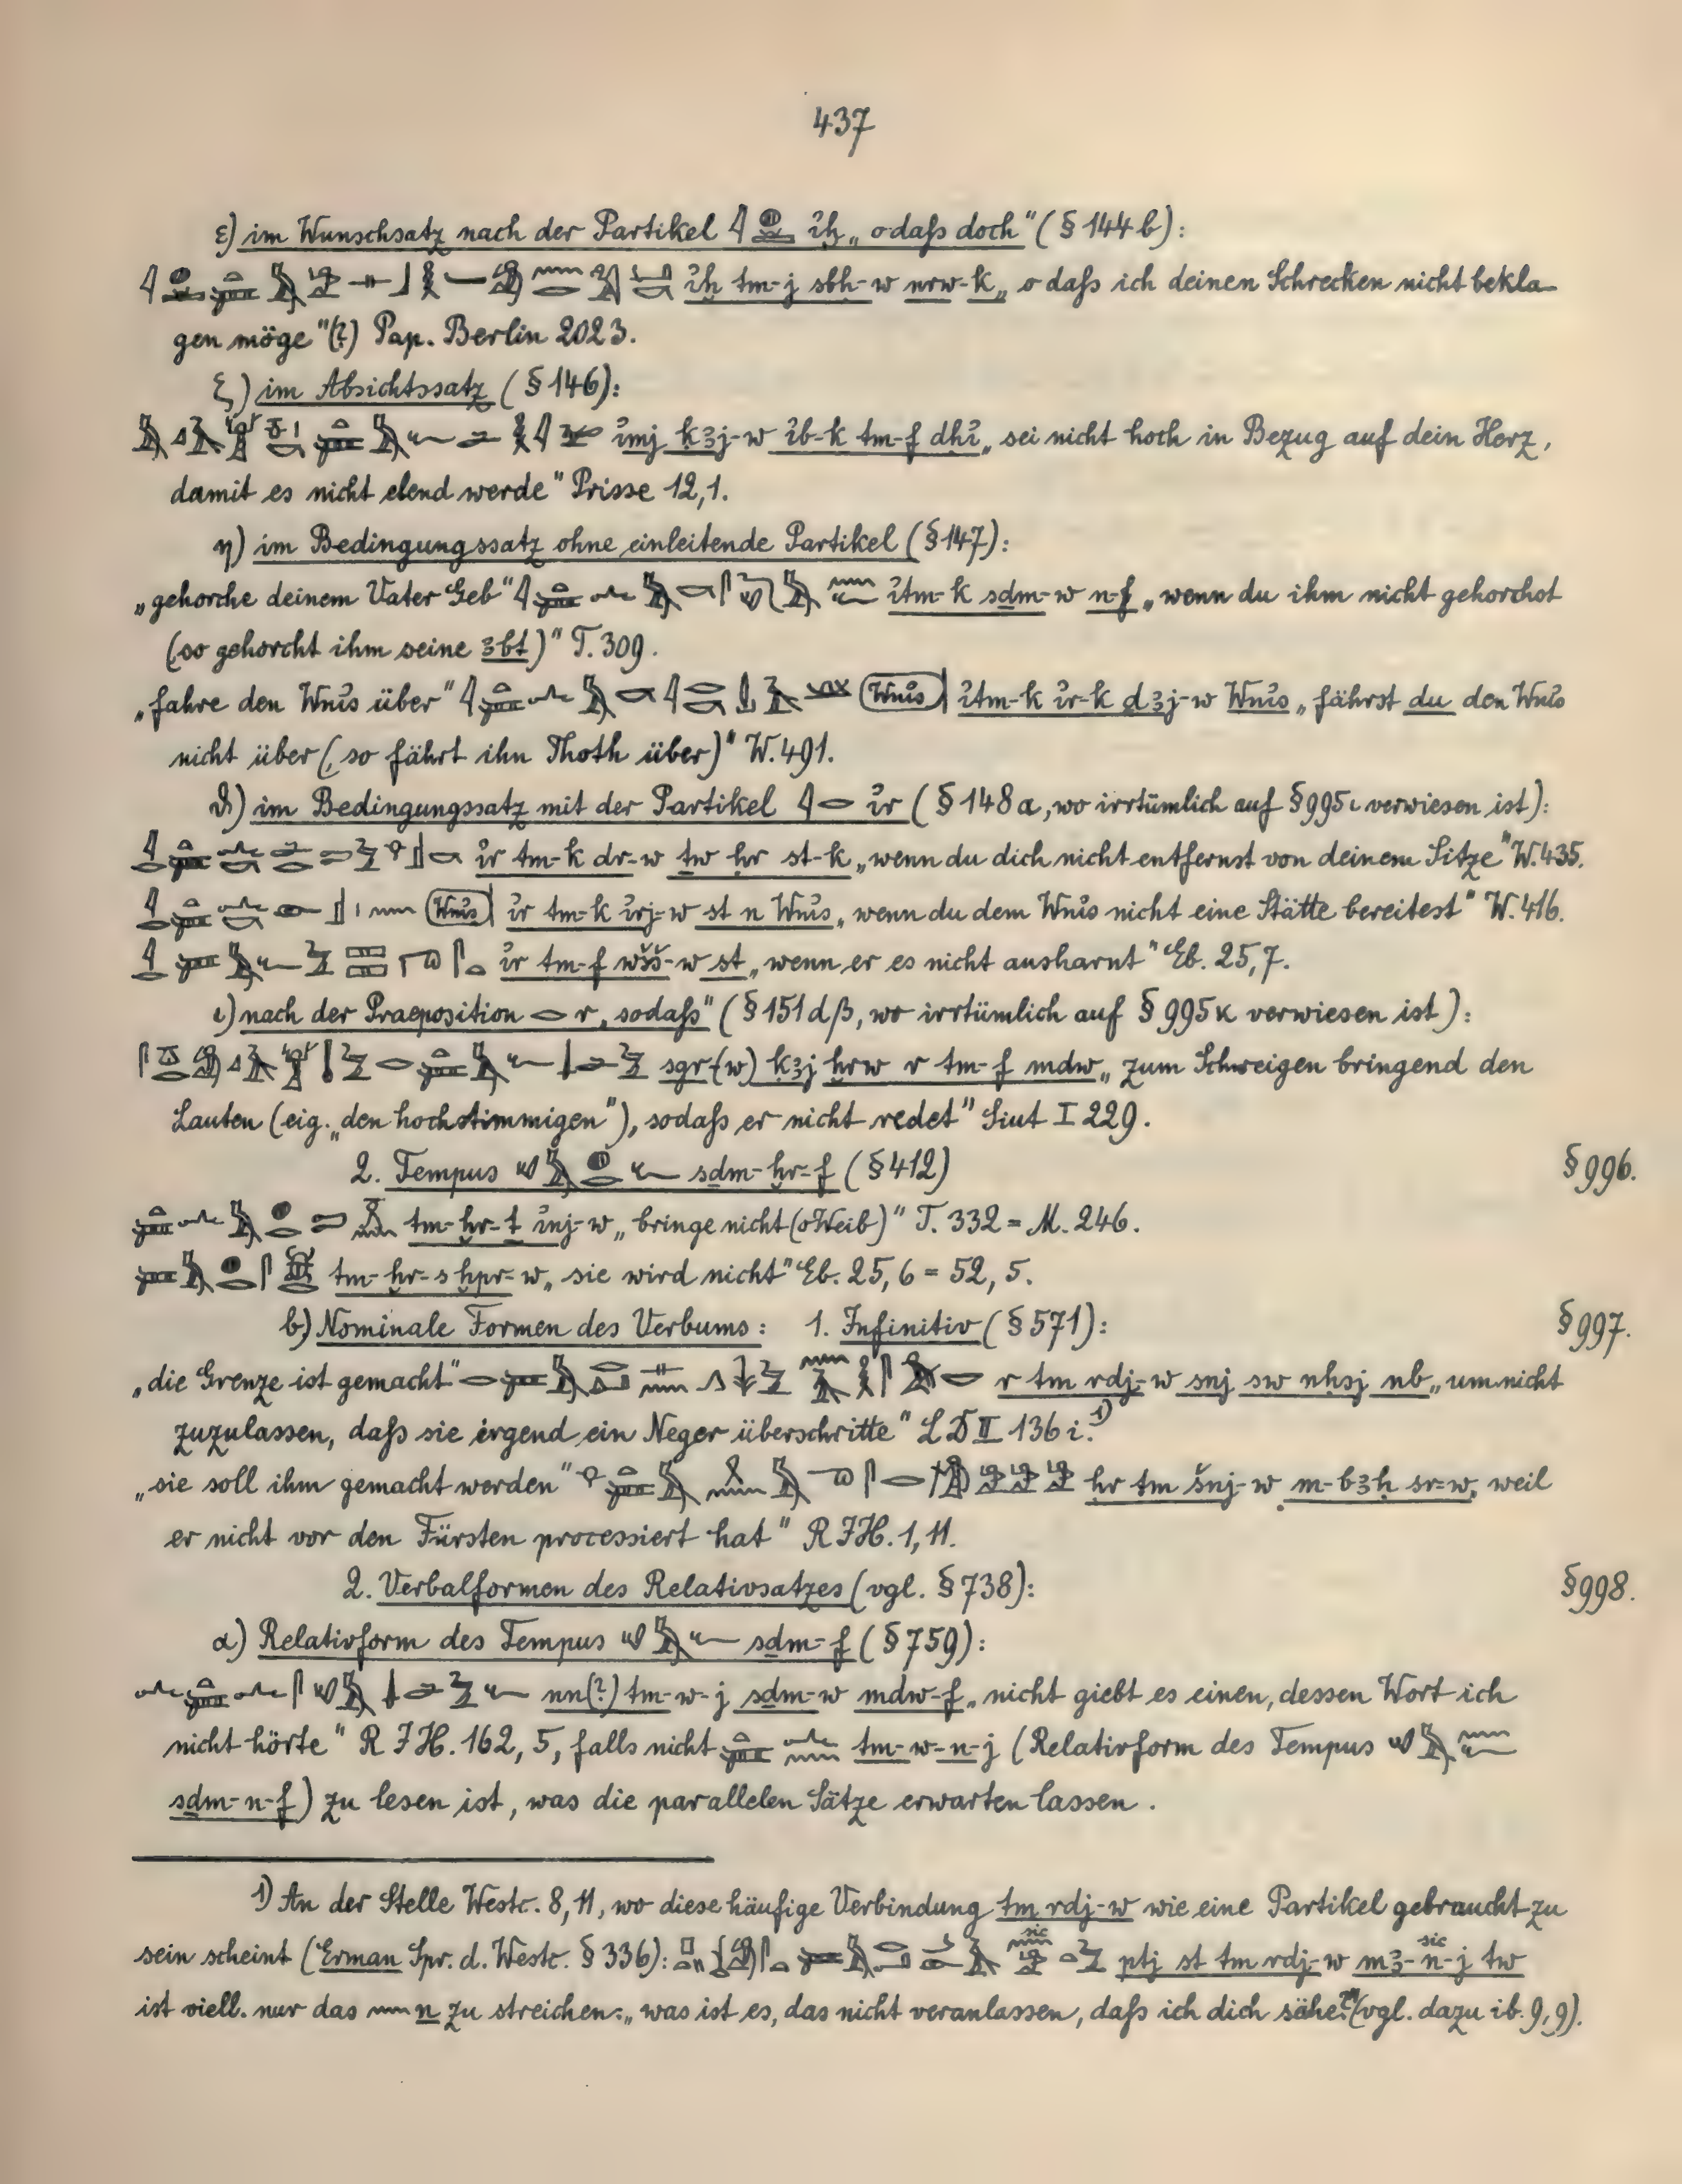 437
ε) im Wunschsatz nach der Partikel iḫ „o daß doch" (§ 144 b):
iḫ tm-j sbḥ-w nrw-k „o daß ich deinen Schrecken nicht bekla-
gen möge" (?) Pap. Berlin 2023.
ζ) im Absichtssatz (§ 146):
imj kꜣj-w ib-k tm-f dḥi „sei nicht hoch in Bezug auf dein Herz,
damit es nicht elend werde" Prisse 12,1.
η) im Bedingungssatz ohne einleitende Partikel (§ 147):
„gehorche deinem Vater Geb" itm-k sḏm-w n-f „wenn du ihm nicht gehorchst
(so gehorcht ihm seine ꜣbt)" T. 309.
„fahre den Wnis über" Wnis itm-k ir-k ḏꜣj-w Wnis „fährst du den Wnis
nicht über (, so fährt ihn Thoth über)" W. 491.
ϑ) im Bedingungssatz mit der Partikel ir (§ 148 a, wo irrtümlich auf § 995 ι verwiesen ist):
ir tm-k dr-w ṯw ḥr st-k „wenn du dich nicht entfernst von deinem Sitze" W. 435.
Wnis ir tm-k irj-w st n Wnis „wenn du dem Wnis nicht eine Stätte bereitest" W. 416.
ir tm-f wšš-w st „wenn er es nicht ausharnt" Eb. 25,7.
ι) nach der Praeposition r „sodaß" (§ 151 d β, wo irrtümlich auf § 995 κ verwiesen ist):
sgr-(w) kꜣj ḫrw r tm-f mdw „zum Schweigen bringend den
Lauten (eig. „den hochstimmigen"), sodaß er nicht redet" Siut I 229.
2. Tempus sḏm-ḫr-f (§ 412) § 996.
tm-ḫr-ṯ inj-w „bringe nicht (o Weib)" T. 332 = M. 246.
tm-ḫr-s ḫpr-w „sie wird nicht" Eb. 25, 6 = 52, 5.
b) Nominale Formen des Verbums: 1. Infinitiv (§ 571): § 997.
„die Grenze ist gemacht" r tm rdj-w snj sw nḥsj nb „um nicht
zuzulassen, daß sie irgend ein Neger überschritte" LD II 136 i. 1)
„sie soll ihm gemacht werden" ḥr tm šnj-w m-bꜣḥ sr-w „weil
er nicht vor den Fürsten processiert hat" RIH. 1, 11.
2. Verbalformen des Relativsatzes (vgl. § 738): § 998.
α) Relativform des Tempus sḏm-f (§ 759):
nn(?) tm-w-j sḏm-w mdw-f „nicht giebt es einen, dessen Wort ich
nicht hörte" RIH. 162, 5, falls nicht tm-w-n-j (Relativform des Tempus
sḏm-n-f) zu lesen ist, was die parallelen Sätze erwarten lassen.
1) An der Stelle Westc. 8, 11, wo diese häufige Verbindung tm rdj-w wie eine Partikel gebraucht zu
sein scheint (Erman Spr. d. Westc. § 336): sic ptj st tm rdj-w mꜣ-n-j tw sic
ist viell. nur das n zu streichen: „was ist es, das nicht veranlassen, daß ich dich sähe?" (vgl. dazu ib. 9, 9).